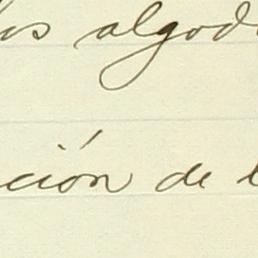 los algod
ción de l